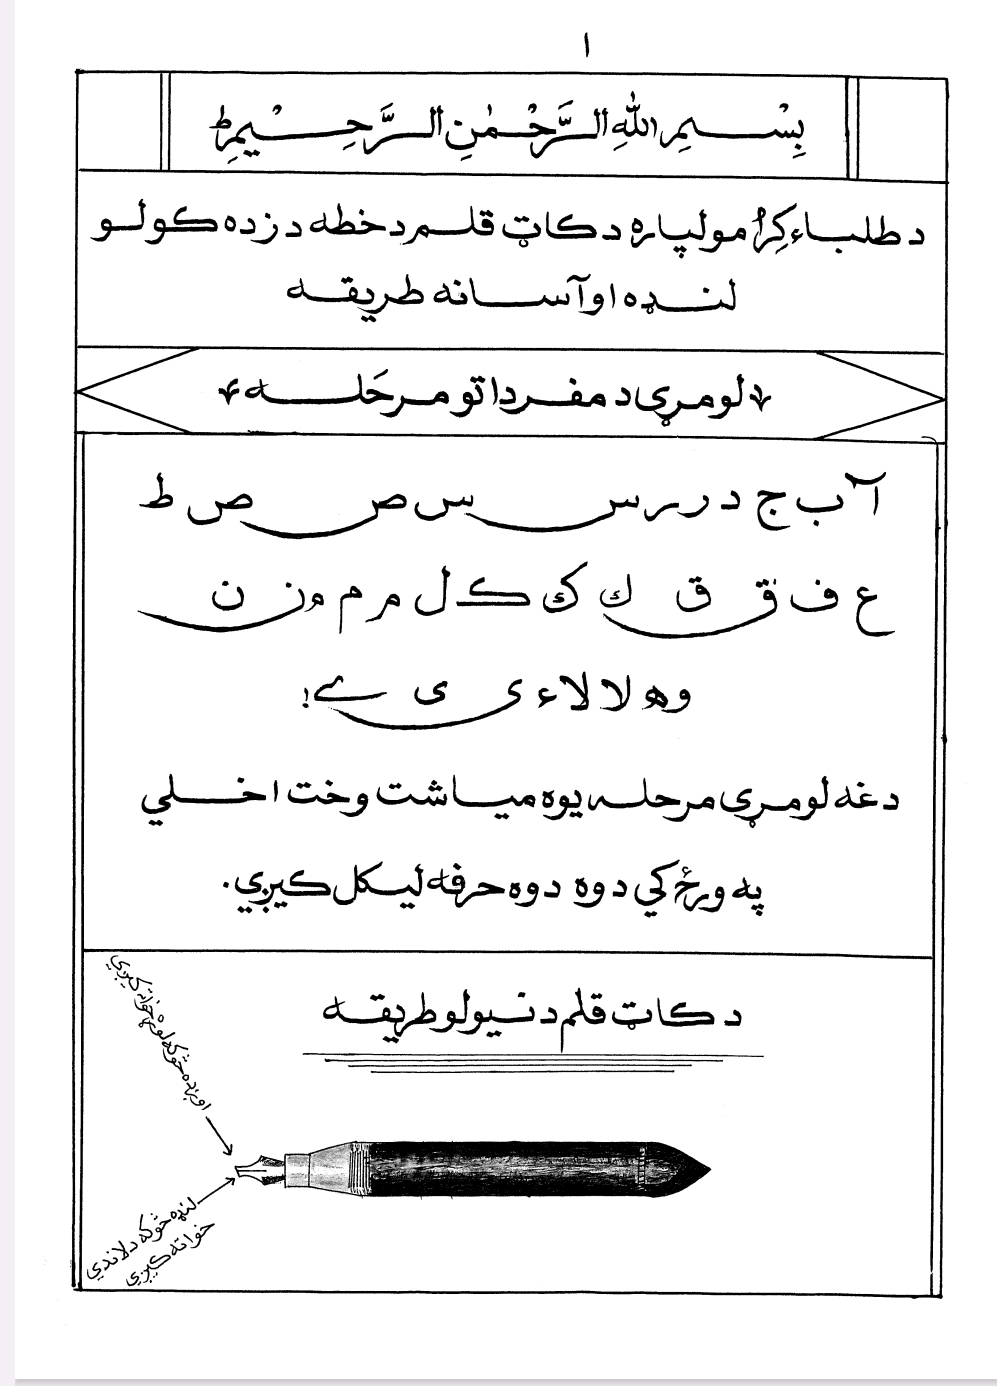 ۱
بِسْــــيمِ اللهِ الرَّحْمٰنِ الرَّحِــيْمِ ط
د طلباء کِرامو لپاره د کاټ قلم د خطه د زده کولو
لنډه او آسانه طریقه
لومړی د مفرداتو مرحَله
آ ب ج د ر ر س س ص ص ط
ع ف ق ق ك ك ک ل م م و ن ن
و ه لا لا ء ی ی ے !
دغه لومړی مرحله یوه میاشت وخت اخلي
په ورځ کي دوه دوه حرفه لیکل کیږي.
د کاټ قلم د نیولو طریقه
اوږده څوکه لوړ خواته کیږدي
لنډه څوکه د لاندي
خواته کیږي